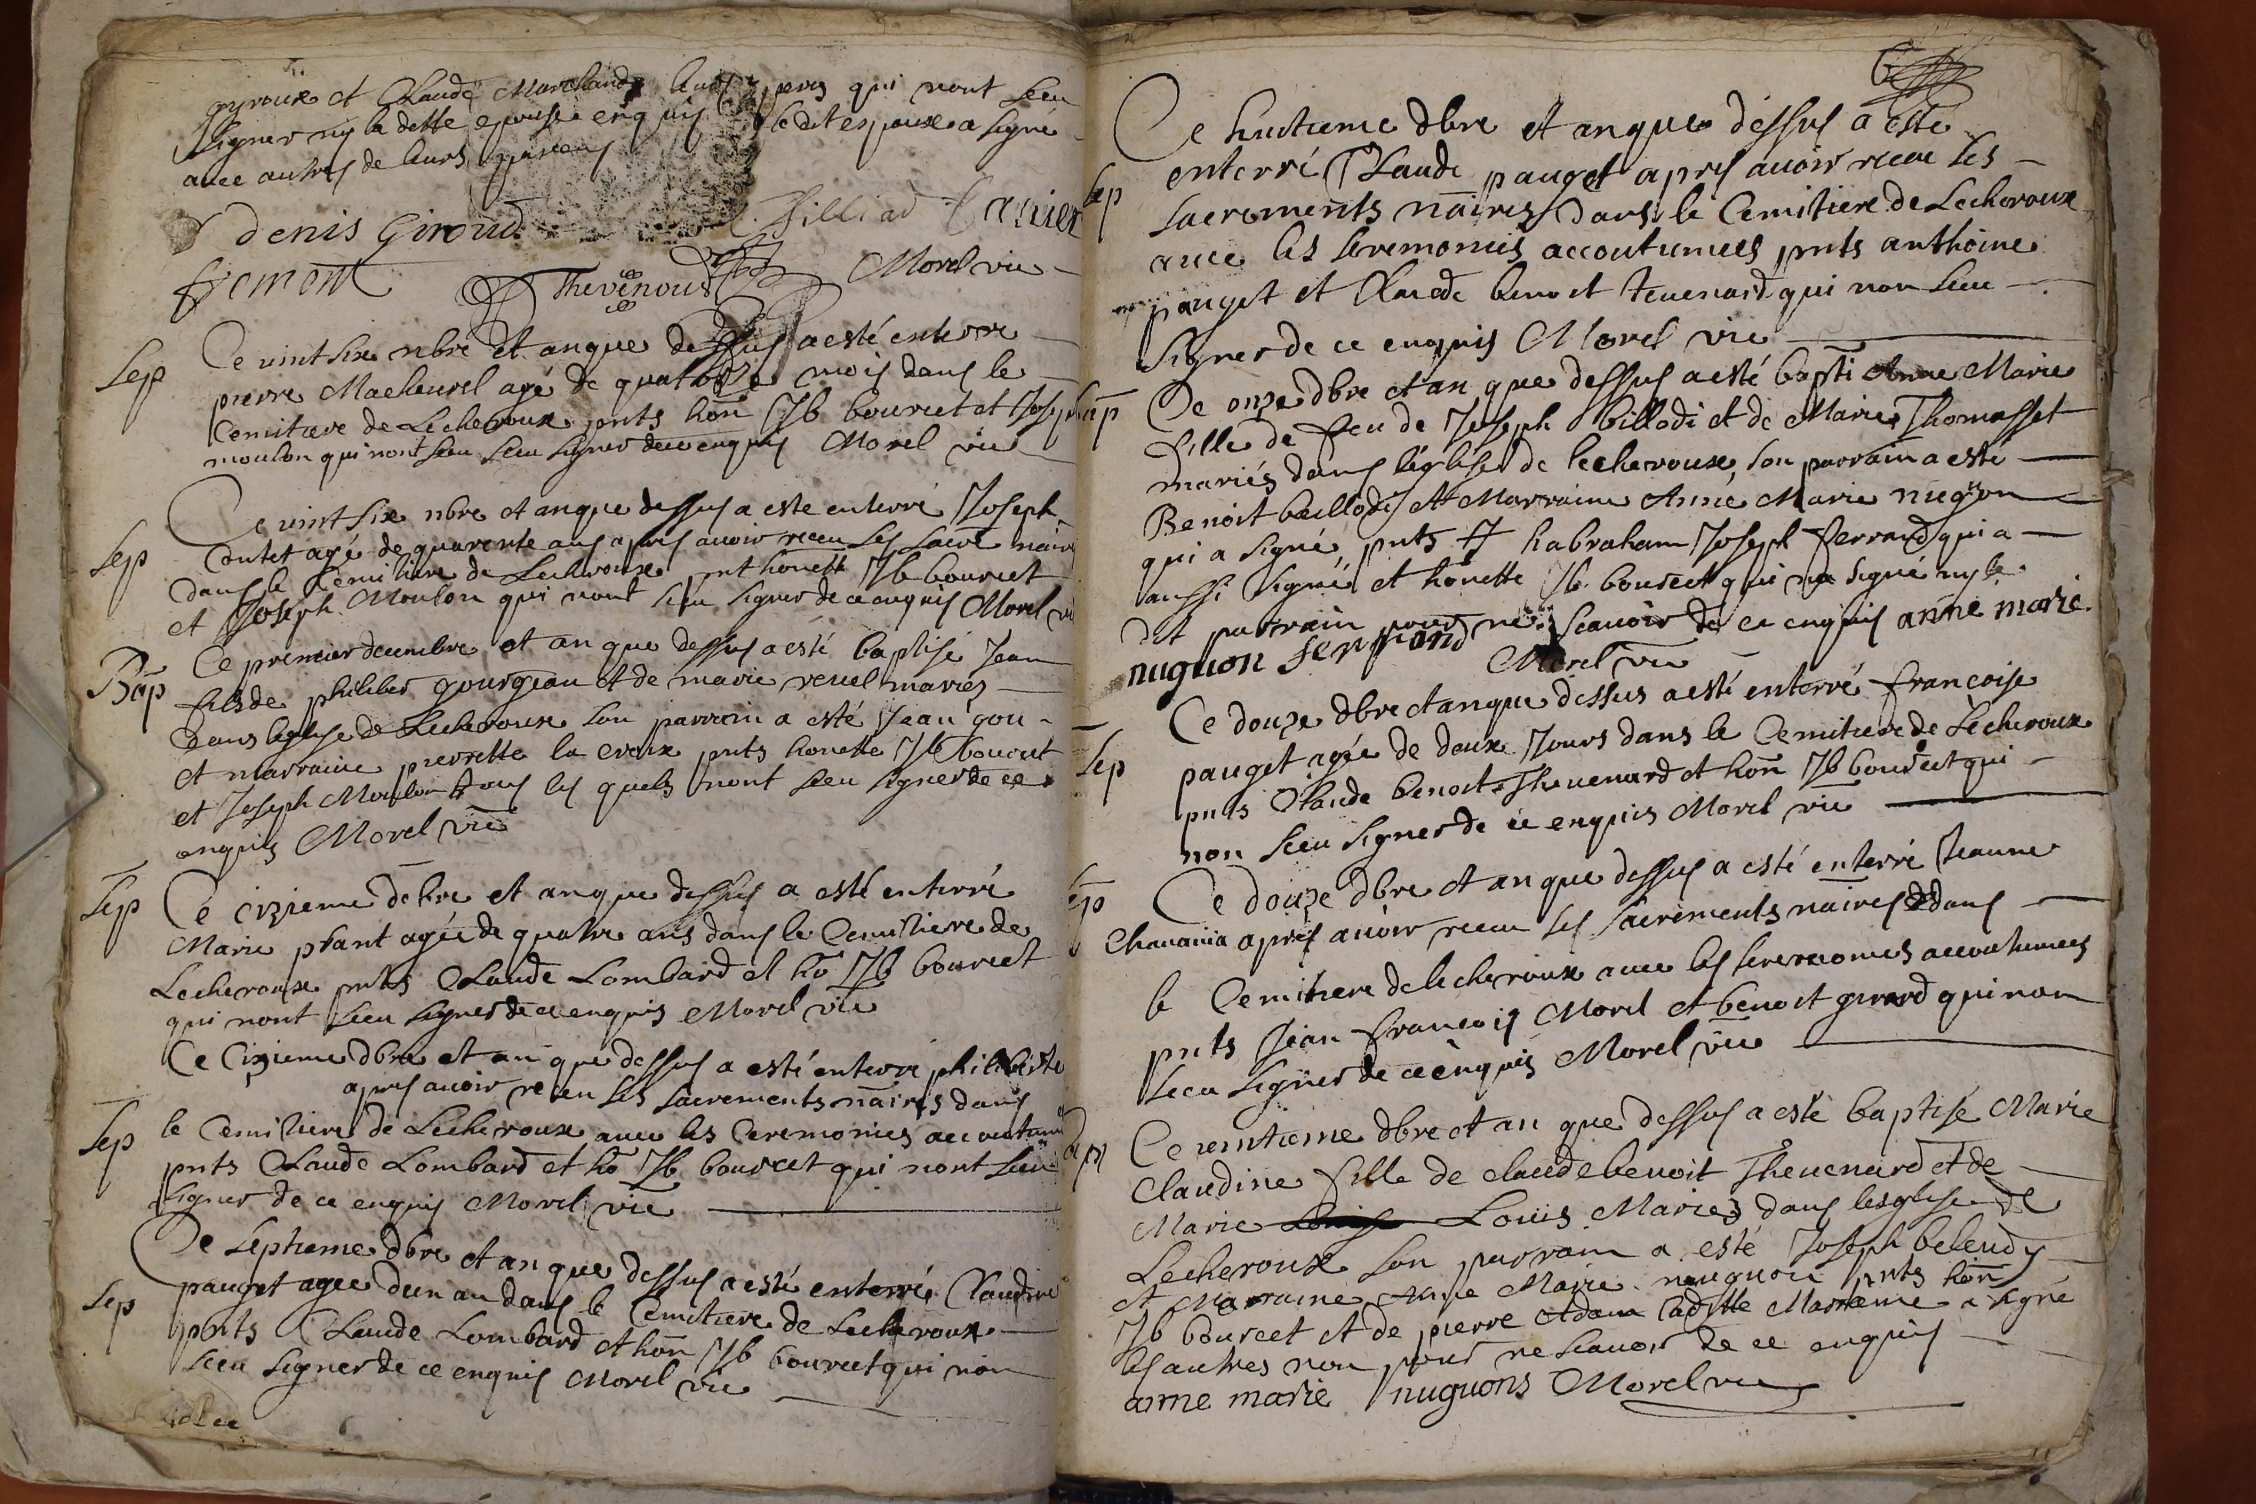 gyroux et Claude Marchand leurs peres qui nont sceu
signer ny la ditte epouse enquis le dit espoux a signé
avec autres de leurs parens
denis Giroud Billiad Canier
fremont Thevenoud Morel vic
Sep
Ce vint six nbre et an que dessus a esté enterre
pierre Macheurel agé de quatorze mois dans le
Cemitiere de Lecheroux pnts hon̄ J b bourcet et Joseph
moulon qui nont sceu signer de ce enquis Morel vic
Sep
Ce vint six nbre et an que dessus a este enterré Joseph
Contet agé de quarente ans apres avoir receu les sacre nair
dans le Cemitiere de Lecheroux pnt honette J b bourcet
et Joseph Moulon qui nont sceu signer de ce enquis Morel vi
Bap
Ce premier decembre et an que dessus a esté baptisé Jean
fils de philiber gourgeau et de marie revel mariés
dans leglise de Lecheroux son parrain a esté Jean gou-
et marraine pierrette la croix pnts honette J b bourcet
et Joseph Moulon tous les quels nont sceu signer de ce
enquis Morel vic
Sep
Ce cizieme debre et an que dessus a esté enterré
Marie phant agée de quatre ans dans le Cemitiere de
Lecheroux pnts Claude Lombard et ho J b bourcet
qui nont sceu signer de ce enquis Morel vic
Sep
Ce Cizieme dbre et an que dessus a esté enterré philiberte
apres avoir receu les sacrements nairs dans
le Cemitiere de Lecheroux avec les Ceremonies accoutum
pnts Claude Lombard et ho J b bourcet qui nont sceu
signer de ce enquis Morel vic
Sep
Ce Septieme dbre et an que dessus a esté enterré Claudine
pauget agee dun an dans le Cemitiere de Lecheroux
pnts Claude Lombard et hon̄ J b bourcet qui non
sceu signer de ce enquis Morel vic
Sep
Ce huitieme dbre et an que dessus a este
enterré Claude pauget apres avoir receu les
sacrements nairs dans le Cemitiere de Lecheroux
avec les seremonies accoutumees pnts anthoine
pauget et Claude benoit tevenard qui non sceu
signer de ce enquis Morel vic
Bap
Ce onze dbre et an que dessus a esté bapti Anne Marie
fille de feu de Joseph billodi et de Marie Thomasset
mariés dans léglise de lecheroux, son parrain a esté
Benoit baillodi et Marraine Anne Marie nugon
qui a signé, pnts habraham Joseph ferrand qui a
aussi signé et honette J b bourcet qui na signé ny le
dit parrain pour ne scavoir de ce enquis anne marie
nuguon ferrand Morel vic
Sep
Ce douze dbre et an que dessus a esté enterré françoise
pauget agée de doux Jours dans le Cemitiere de Lecheroux
pnts Claude benoit Thevenard et hon̄ J b bourcet qui
non sceu signer de ce enquis Morel vic
Sep
Ce douze dbre et an que dessus a esté enterré Jeanne
Chavania apres avoir receu les sacrements naires dans
le Cemitiere de lecheroux avec les seremonies accoutumees
pnts Jean françois Morel et benoit girard qui non
sceu signer de ce enquis Morel vic
Bap
Ce vintieme dbre et an que dessus a esté baptisé Marie
Claudine fille de claude benoit Thevenard et de
Marie Louis Mariés dans lesglise de
Lecheroux son parrain a esté Joseph belendy
et Marraine Anne Marie nuguon pnts hon̄
J b bourcet et de pierre Adam ladille Marreine a signé
les autres non pour ne scavoir de ce enquis
anne marie nuguons Morel vic